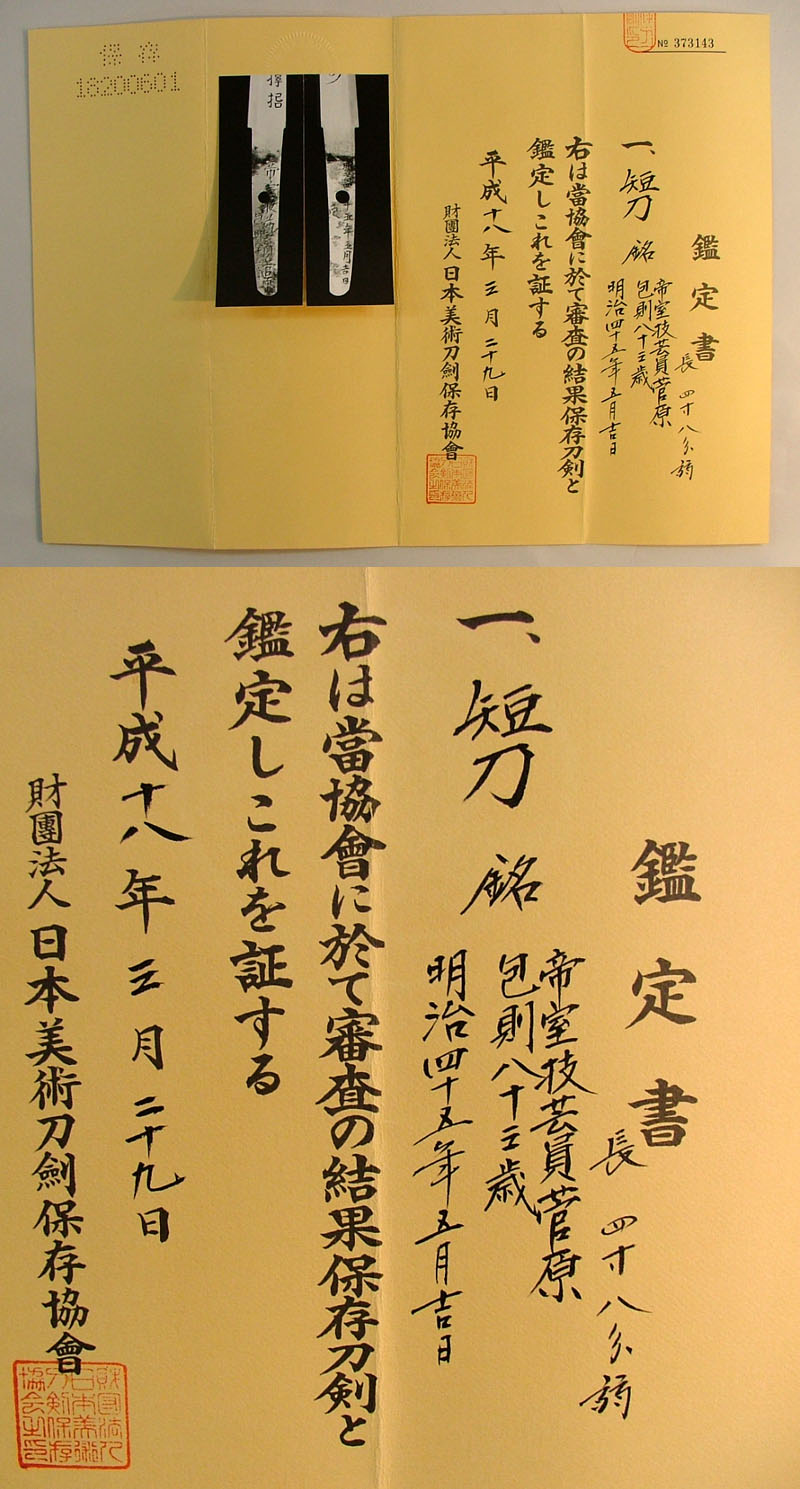 保存
18200601
№ 373143
鑑定書
長 四寸八分弱
一、短刀 銘
帝室技芸員菅原
包則八十三歳
明治四十五年五月吉日
右は當協會に於て審査の結果保存刀剣と
鑑定しこれを証する
平成十八年三月二十九日
財團法人日本美術刀劍保存協會
鑑定書
長 四寸八分弱
一、短刀 銘
帝室技芸員菅原
包則八十三歳
明治四十五年五月吉日
右は當協會に於て審査の結果保存刀剣と
鑑定しこれを証する
平成十八年三月二十九日
財團法人日本美術刀劍保存協會
財団法人
日本美術
刀剣保存
協会之印